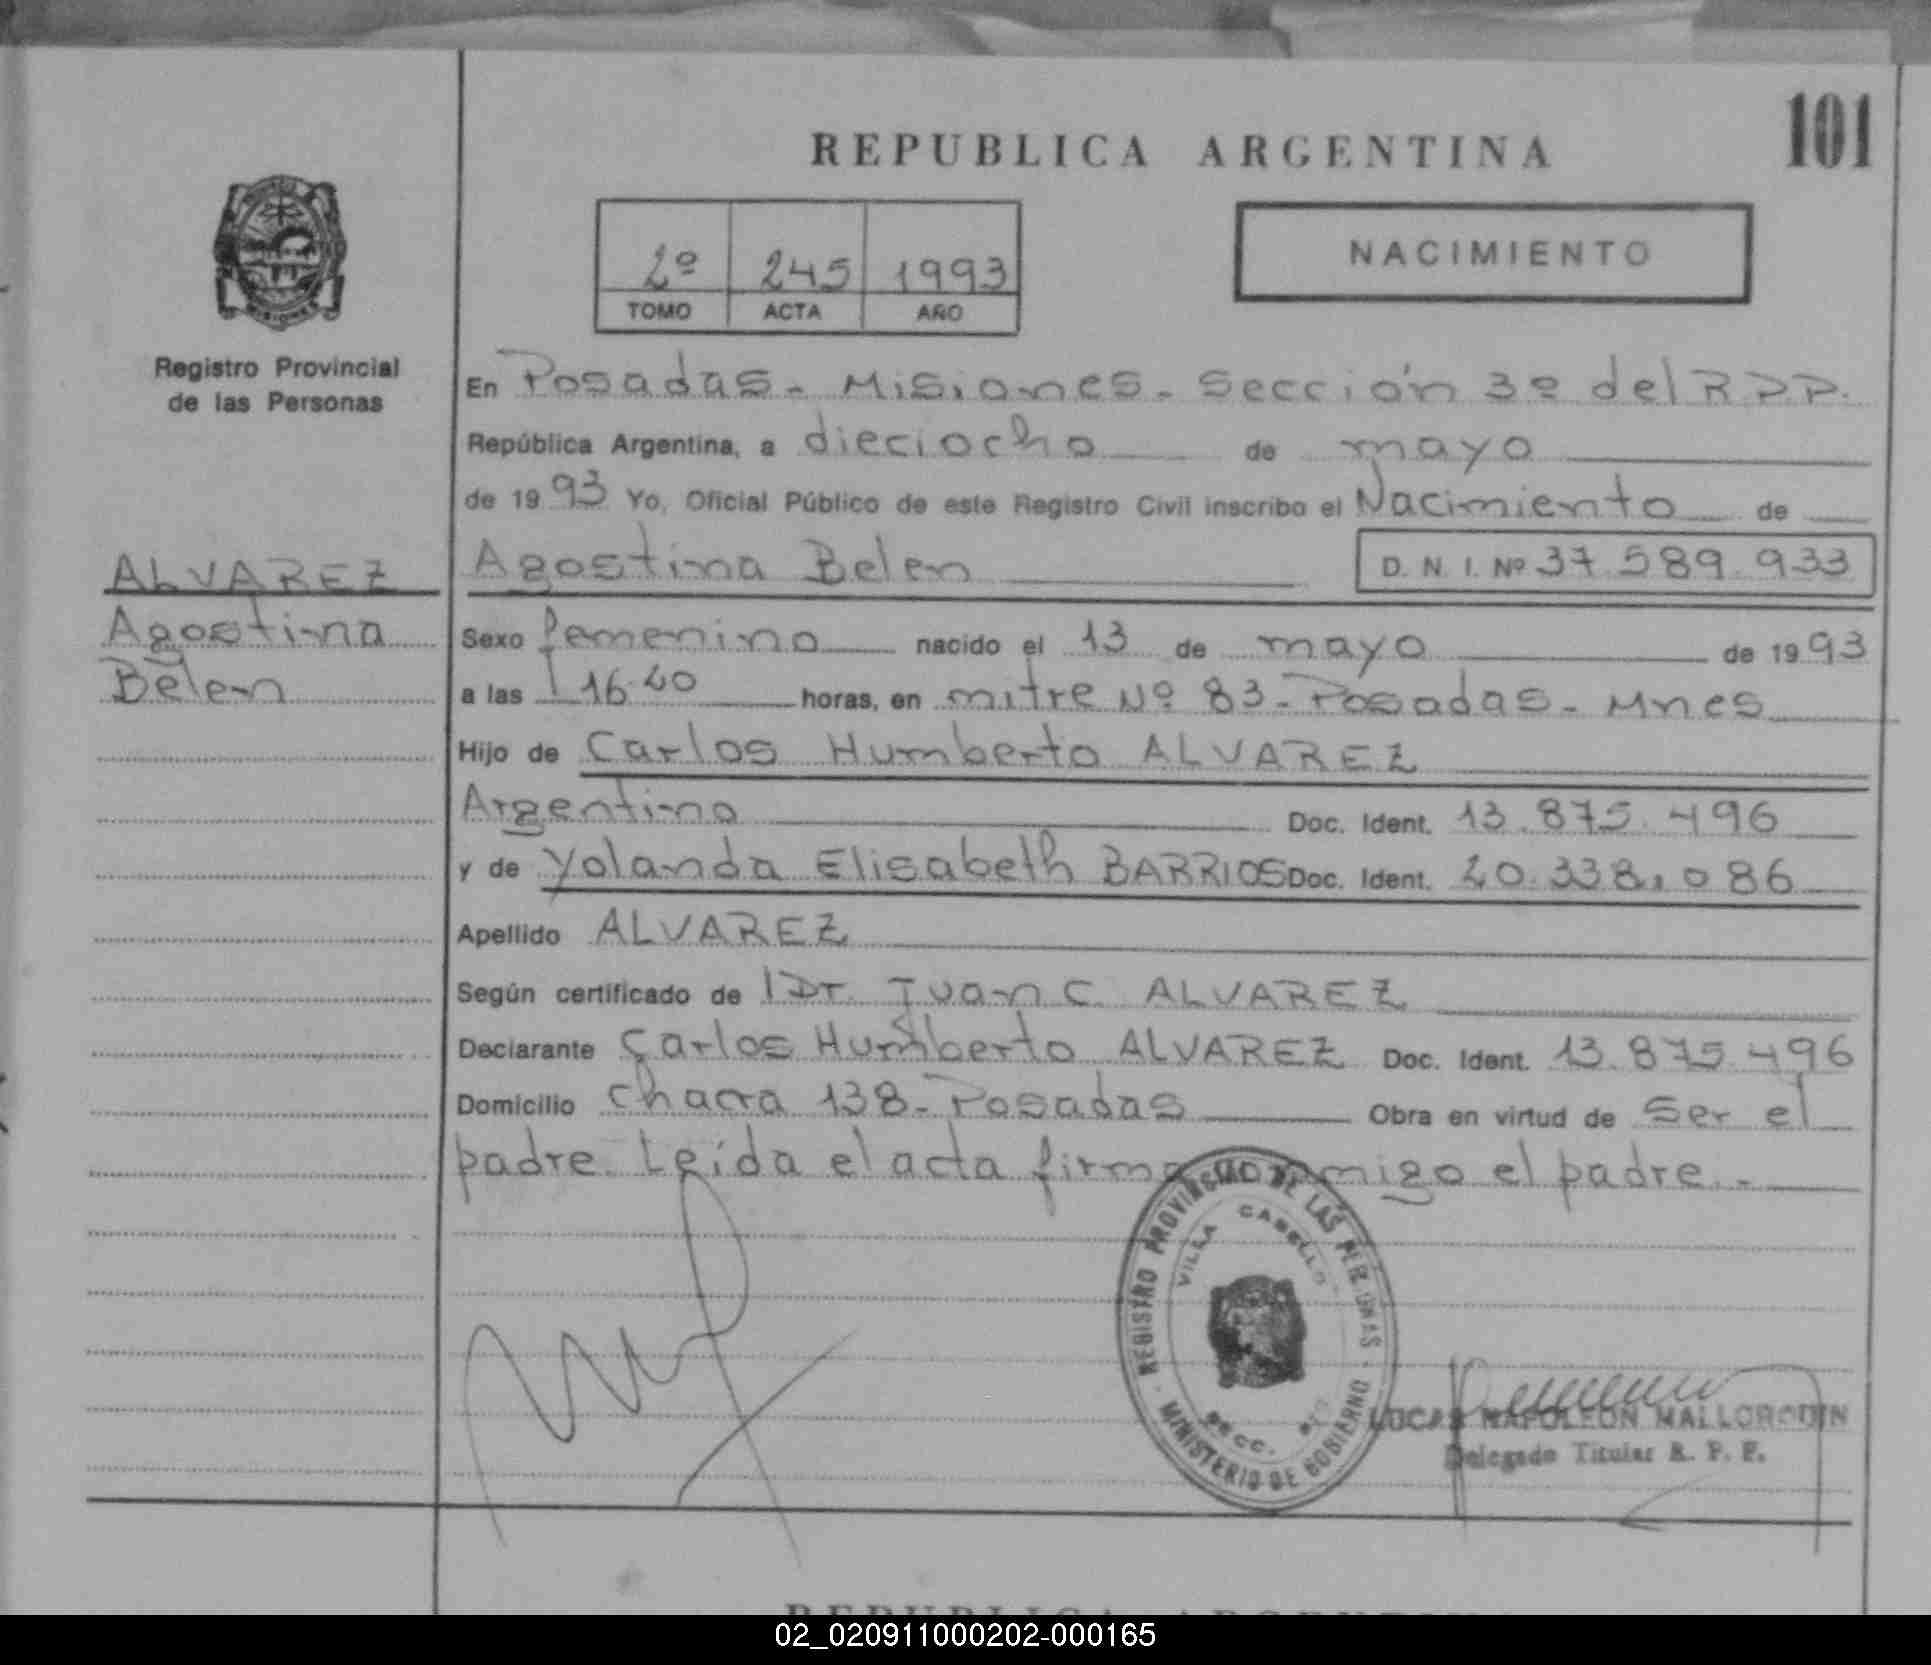 101
REPUBLICA ARGENTINA
2º 245 1993
TOMO ACTA AÑO
NACIMIENTO
MISIONES
Registro Provincial
de las Personas
En Posadas - Misiones - Sección 3º del R.P.P.
República Argentina, a dieciocho de mayo
de 1993 Yo, Oficial Público de este Registro Civil inscribo el Nacimiento de
ALVAREZ
Agostina
Belen
Agostina Belen D. N. I. Nº 37.589.933
Sexo femenino nacido el 13 de mayo de 1993
a las 16.40 horas, en mitre Nº 83 - Posadas - Mnes
Hijo de Carlos Humberto ALVAREZ
Argentino Doc. Ident. 13.875.496
y de Yolanda Elisabeth BARRIOS Doc. Ident. 20.338.086
Apellido ALVAREZ
Según certificado de Dr. Juan C. ALVAREZ
Declarante Carlos Humberto ALVAREZ Doc. Ident. 13.875.496
Domicilio chacra 138 - Posadas Obra en virtud de ser el
padre. Leída el acta firma conmigo el padre.-
REGISTRO PROVINCIAL DE LAS PERSONAS
VILLA CABELLO
SECC.
MINISTERIO DE GOBIERNO
LUCAS NAPOLEON MALLORQUIN
Delegado Titular R. P. P.
REPUBLICA ARGENTINA
02_020911000202-000165